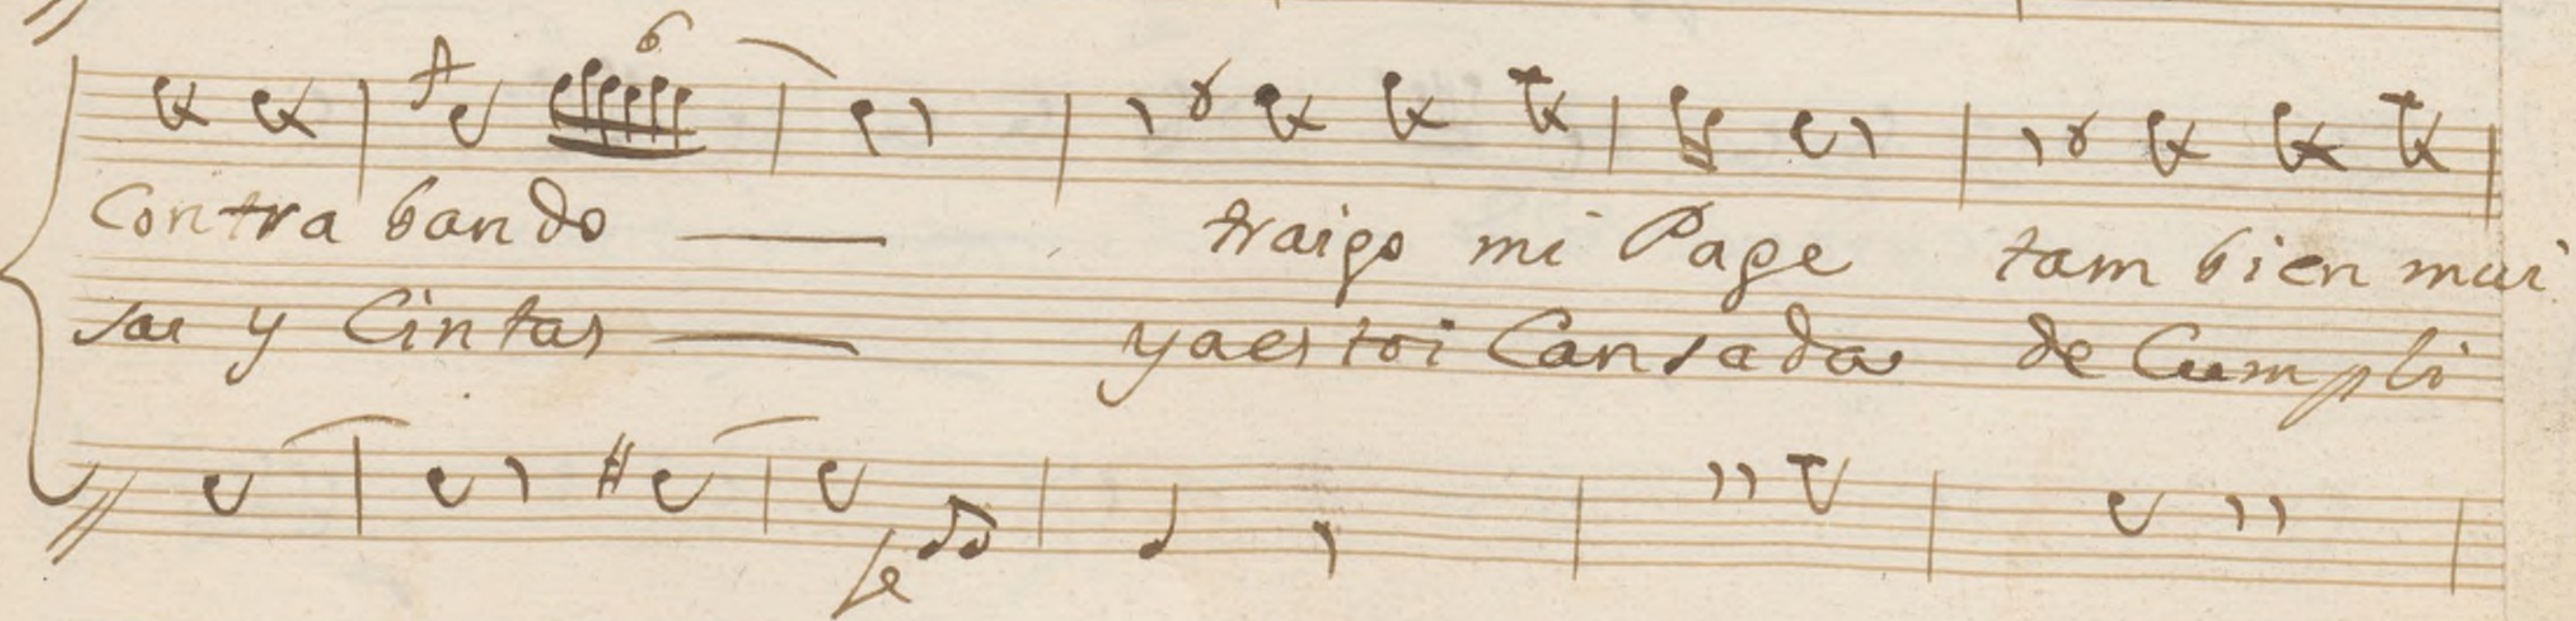 6
Contra bando traigo mi Page tam bien mui
sas y Cintas ya es toi Cansada de Cumpli